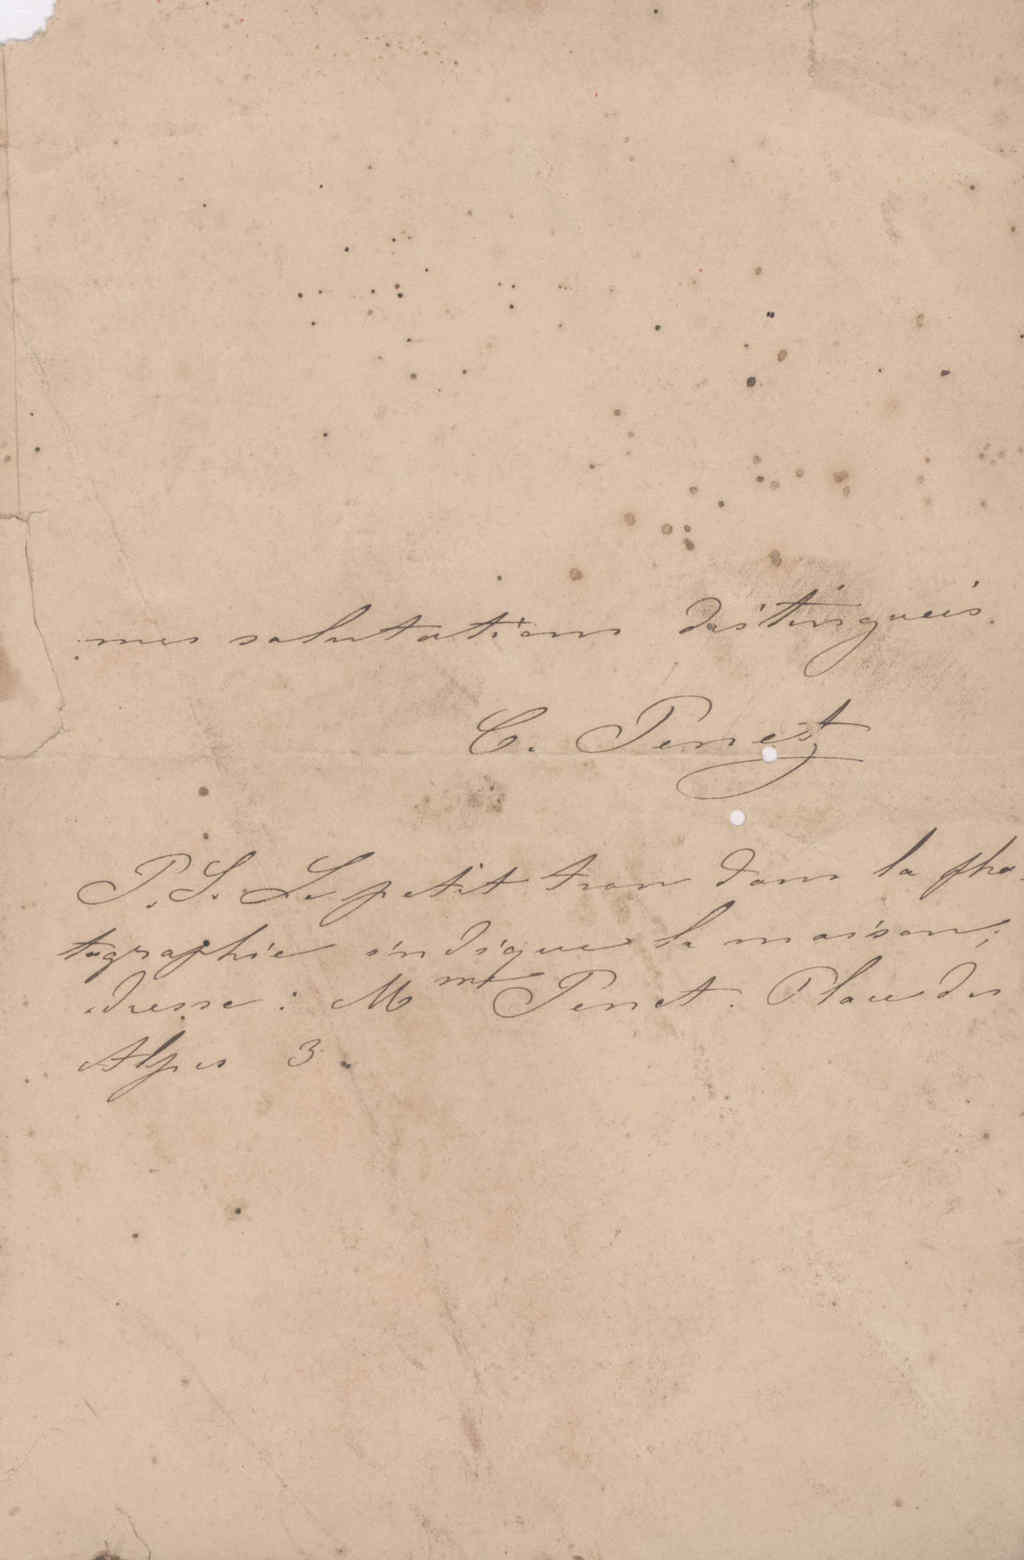 mes salutations distingueés.
C. Penet
P. S. Le petit trou dans la pho-
tographie indique la maison;
adresse: M me Penet. Place des
Alpes 3.